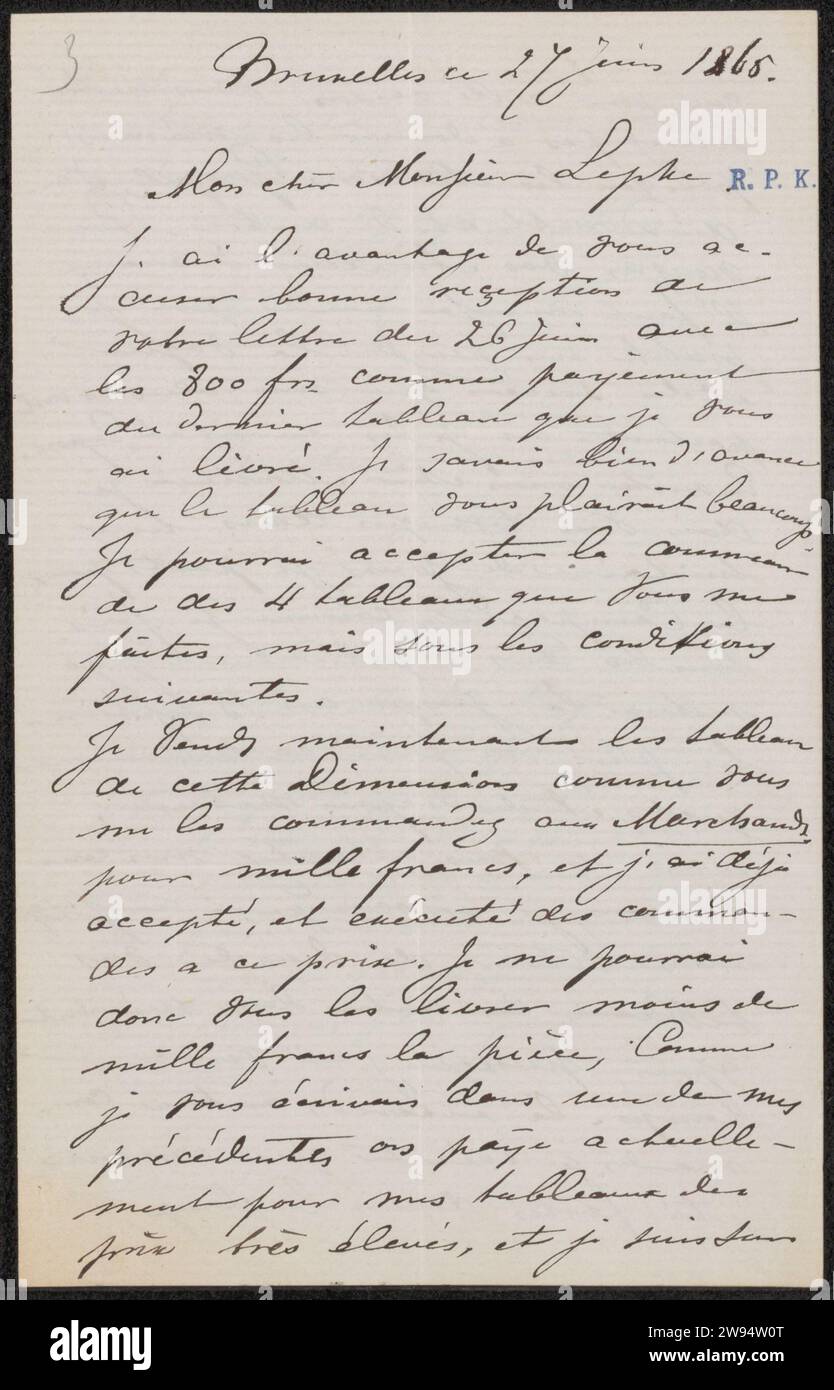 3
Bruxelles ce 27 juin 1865.
Mon cher Monsieur Lepke
R. P. K.
J'ai l'avantage de vous ac-
cuser bonne reception de
votre lettre du 26 Juin avec
les 800 frs comme payement
du dernier tableau que je vous
ai livré. Je savais bien d'avance
que le tableau vous plairait beaucoup.
Je pourrai accepter la comman
de des 4 tableaux que Vous me
faites, mais sous les conditions
suivantes.
Je Vends maintenant les tableau
de cette Dimension comme vous
me les commandez aux Marchands
pour mille francs, et j'ai déjà
accepté, et exécuté des comman-
des a ce prix. Je ne pourrai
donc vous les livrer moins de
mille francs la pièce, Comme
je vous écrivais dans une de mes
précédentes on paye actuelle-
ment pour mes tableaux des
prix très élevés, et je suis sur
alamy
Image ID: 2W94W0T
www.alamy.com